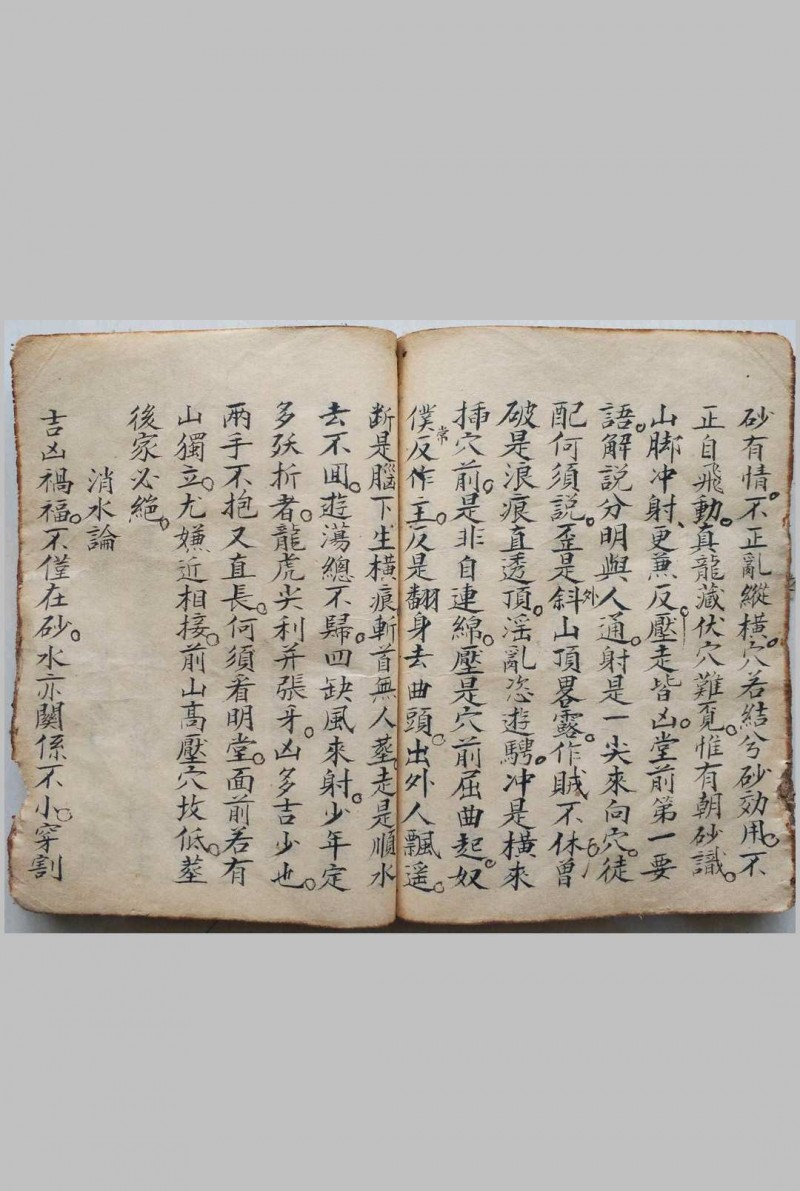 砂有情。不正亂縱橫。穴若結兮砂効用。不
正自飛動。真龍藏伏穴難覔。惟有朝砂識。
山脚冲射、更兼反。壓走皆凶。堂前第一要
語。解説分明與人通。射是一尖來向穴。徒
配何須説。歪是斜外山頂畧露。作賊不休曾
破是浪痕直透頂。滛亂恣遊騁。冲是橫來
插穴前。是非自連綿。壓是穴前屈曲起。奴
僕常反作主。反是翻身去曲頭。出外人飄遥。
断是腦下生橫痕。斬首無人塟。走是順水
去不囬。遊蕩總不歸。四缺風來射。少年定
多殀折者。龍虎尖利并張牙。凶多吉少也。
兩手不抱又直長。何須看明堂。面前若有
山獨立。尤嫌近相接。前山高壓穴坟低。塟
後家必絶。
消水論
吉凶禍福。不僅在砂。水亦關係不小。穿割